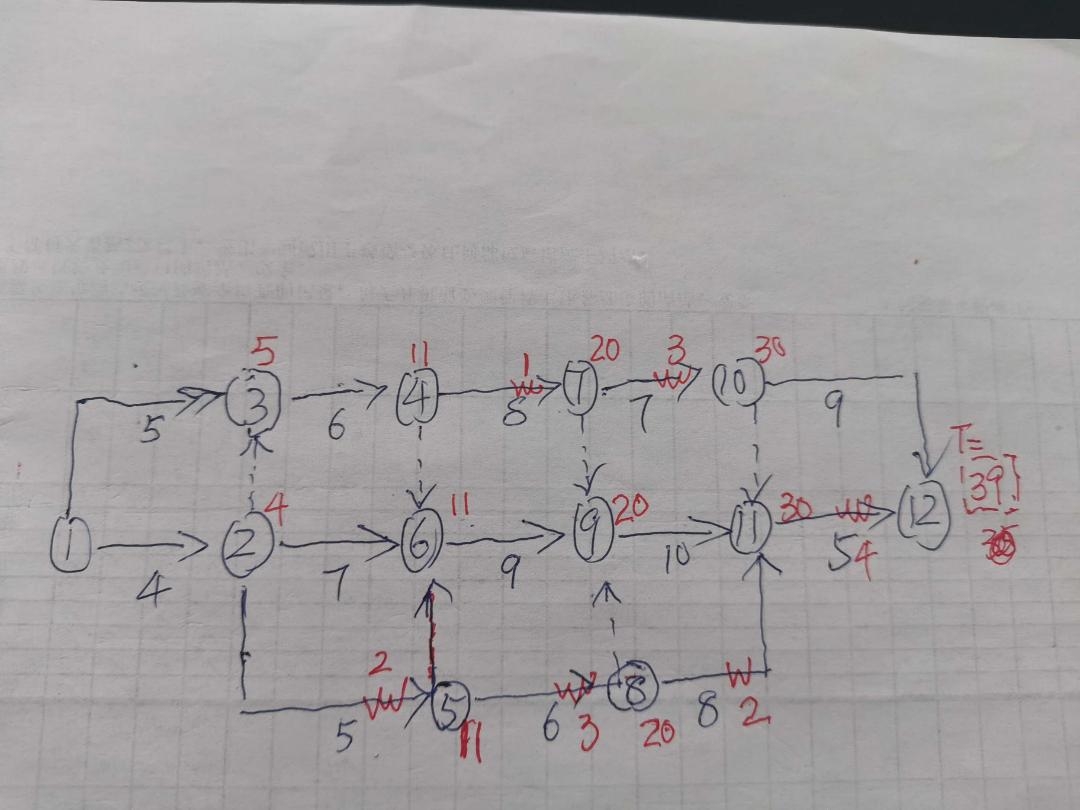 5 11 1 20 3 30
3 4 7 10
5 6 8 7 9
T=
39
4 11 20 30
1 2 6 9 11 12
4 7 9 10 5 4
2
5 8
5 6 3 8 2
11 20